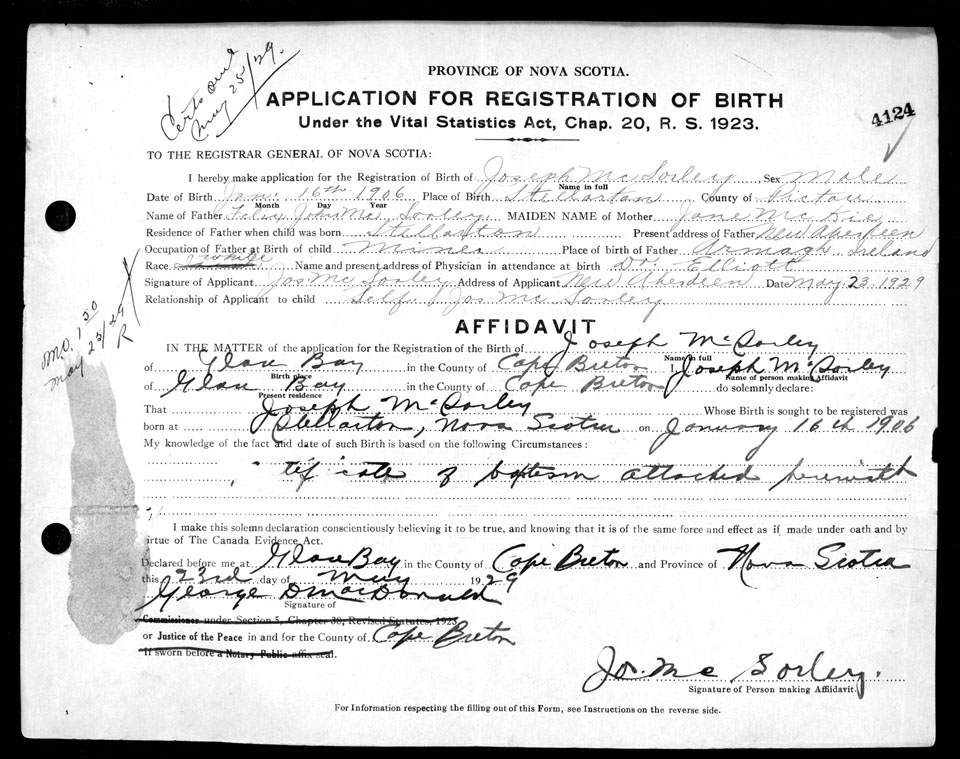 Certs out
May 25/29.
PROVINCE OF NOVA SCOTIA.
APPLICATION FOR REGISTRATION OF BIRTH
Under the Vital Statistics Act, Chap. 20, R. S. 1923.
4124
TO THE REGISTRAR GENERAL OF NOVA SCOTIA:
I hereby make application for the Registration of Birth of Joseph Mc Sorley Sex Male
Name in full
Date of Birth Jan. 16th 1906 Place of Birth Stellarton County of Pictou
Month Day Year
Name of Father Felix John Mc Sorley MAIDEN NAME of Mother Jane Mc Kie
Residence of Father when child was born Stellarton Present address of Father New Aberdeen
Occupation of Father at Birth of child Miner Place of birth of Father Armagh Ireland
Race White Name and present address of Physician in attendance at birth Dr. Elliott
Signature of Applicant Jos Mc Sorley Address of Applicant New Aberdeen Date May 23 1929
Relationship of Applicant to child Self Jos. Mc Sorley
mo. 1 50
May 25/29
R
AFFIDAVIT
IN THE MATTER of the application for the Registration of the Birth of Joseph McSorley
Name in full
of Glace Bay in the County of Cape Breton I Joseph McSorley
Birth place Name of person making Affidavit
of Glace Bay in the County of Cape Breton do solemnly declare:
Present residence
That Joseph McSorley Whose Birth is sought to be registered was
born at Stellarton, Nova Scotia on January 16th 1906
My knowledge of the fact and date of such Birth is based on the following Circumstances:
tificate of baptism attached herewith
I make this solemn declaration conscientiously believing it to be true, and knowing that it is of the same force and effect as if made under oath and by
irtue of The Canada Evidence Act.
Declared before me at Glace Bay in the County of Cape Breton and Province of Nova Scotia
this 23rd day of May 1929
George D MacDonald
Signature of
Commissioner under Section 5, Chapter 38, Revised Statutes, 1923
or Justice of the Peace in and for the County of Cape Breton
If sworn before a Notary Public affix seal.
Jos. Mc Sorley.
Signature of Person making Affidavit.
For Information respecting the filling out of this Form, see Instructions on the reverse side.